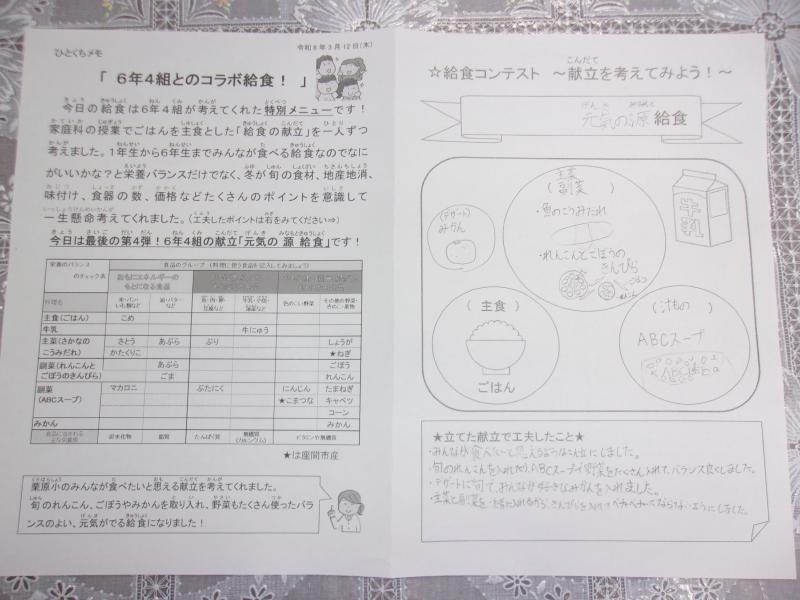 ひとくちメモ
令和8年3月12日(木)
「 6年4組とのコラボ給食！ 」
今日の給食は6年4組が考えてくれた特別メニューです！
家庭科の授業でごはんを主食とした「給食の献立」を一人ずつ
考えました。1年生から6年生までみんなが食べる給食なのでなに
がいいかな？と栄養バランスだけでなく、冬が旬の食材、地産地消、
味付け、食器の数、価格などたくさんのポイントを意識して
一生懸命考えてくれました。（工夫したポイントは右をみてください⇒）
今日は最後の第4弾！6年4組の献立「元気の 源 給食」です！
栄養のバランス
のチェック表
食品のグループ （料理に使う食品を記入してみましょう）
おもにエネルギーの
もとになる食品
料理名
米・パン・
いも類など
油・バター・
など
色のこい野菜
その他の野菜・
きのこ・果物
主食（ごはん） こめ
牛乳 牛にゅう
主菜（さかなの さとう あぶら ぶり しょうが
こうみだれ） かたくりこ ★ねぎ
副菜（れんこんと あぶら ごぼう
ごぼうのきんぴら） ごま れんこん
副菜 マカロニ ぶたにく にんじん たまねぎ
（ABCスープ） ★こまつな キャベツ
コーン
みかん みかん
炭水化物 脂質 たんぱく質 無機質 ビタミンや無機質
（カルシウム）
★は座間市産
栗原小のみんなが食べたいと思える献立を考えてくれました。
旬のれんこん、ごぼうやみかんを取り入れ、野菜もたくさん使ったバラ
ンスのよい、元気がでる給食になりました！
☆給食コンテスト ～献立を考えてみよう！～
元気の源 給食
主菜
（副菜）
・魚のこうみだれ
・れんこんとごぼうの
きんぴら
（デザート）
みかん
牛乳
（主食）
ごはん
（汁もの）
ABCスープ
★立てた献立で工夫したこと★
・みんなが食べたいと思えるようなこん立にしました。
・旬のれんこんを入れたり、ABCスープで野菜をたくさん入れて、バランス良くしました。
・デザートに旬で、みんなが好きなみかんを入れました。